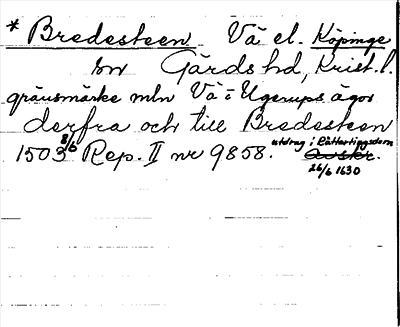 * Bredesteen Vä el. Köpinge
sn Gärds hd, Krist. l.
gränsmärke mln Vä- i Ugerups ägor
derfra och till Bredesteen
1503 8/6 Rep. II nr 9858. utdrag i Rättartingsdom
Avskr.
26/6 1630